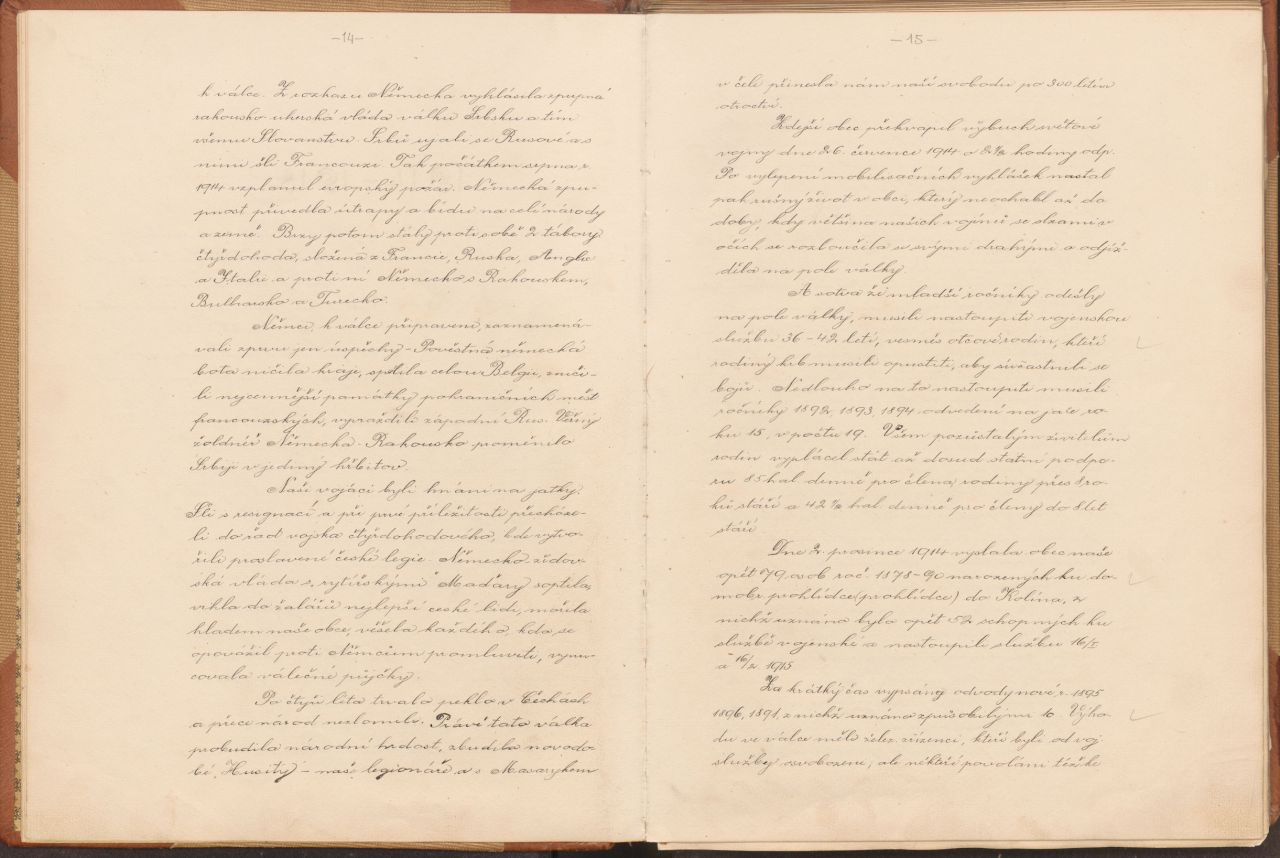 -14-
k válce. Z rozkazu Německa vyhlásila zpupná
rakousko-uherská vláda válku Srbsku a tím
všemu Slovanstvu. Srbů ujali se Rusové a s
nimi šli Francouzi. Tak počátkem srpna r.
1914 vzplanul evropský požár. Německá zpu-
pnost přivedla útrapy a bídu na celé národy
a země. Brzy potom stály proti sobě 2 tábory
čtyřdohoda, složená z Francie, Ruska, Anglie
a Italie a proti ní Německo s Rakouskem,
Bulharsko a Turecko.
Němci, k válce připraveni, zaznamená-
vali zprvu jen úspěchy - Pověstná německá
bota ničila kraje, zniči-
li nejcennější památky pohraničních měst
francouzských, vyprázdili západní Rus. Věrný
žoldnéř Německa - Rakousko proměnilo
Srbii v jediný hřbitov.
Naši vojáci byli hnáni na jatky.
Šli s resignací a při prvé příležitosti přecháze-
li do řad vojska čtyřdohodového, kde vytvo-
řili proslavené české legie. Německo-židov-
ská vláda s "rytířskými" Maďary soptila,
vrhla do žalářů nejlepší české lidi, mořila
hladem naše obce, věšela každého, kdo se
opovážil proti Němcům promluviti, vynu-
covala válečné půjčky.
Po čtyři léta trvalo peklo v Čechách
a přece národ nezlomilo. Právě tato válka
probudila národní hrdost, zbudila novodo-
bé "Husity" - naše legionáře a s Masarykem
-15-
v čele přinesla nám naši svobodu po 300 letém
otroctví.
Zdejší obec překvapil výbuch světové
vojny dne 26. července 1914 o 2½ hodiny odp.
Po vylepení mobilisačních vyhlášek nastal
pak rušný život v obci, který neochabl až do
doby, kdy většina našich vojínů se slzami v
očích se rozloučila se svými drahými a odjíž-
děla na pole války.
A sotva že mladší ročníky odešly
na pole války, museli nastoupiti vojenskou
službu 36-42 letí, vesměs otcové rodin, kteří
rodinný krb museli opustiti, aby súčastnili se
bojů. Nedlouho na to nastoupiti museli
ročníky 1892, 1893, 1894 odvedení na jaře ro-
ku 15, v počtu 19. Všem pozůstalým živitelům
rodin vyplácel stát až dosud statní podpo-
ru 85 hal denně pro člena rodiny přes 8 ro-
ků stáří a 42½ hal denně pro členy do 8 let
stáří.
Dne 2. prosince 1914 vyslala obec naše
opět 79 osob roč. 1878-90 narozených ku do-
mobr. prohlídce (prohlídce) do Kolína, z
nichž uznáno bylo opět 52 schopných ku
službě vojenské a nastoupili službu 16/I
a 16/2 1915
Za krátký čas vypsány odvody nové, r. 1895
1896, 1891, z nichž uznáno způsobilými 10. Výho-
du ve válce měli želez. zřízenci, kteří byli od voj.
služby osvobozeni, ale někteří povoláni též ke